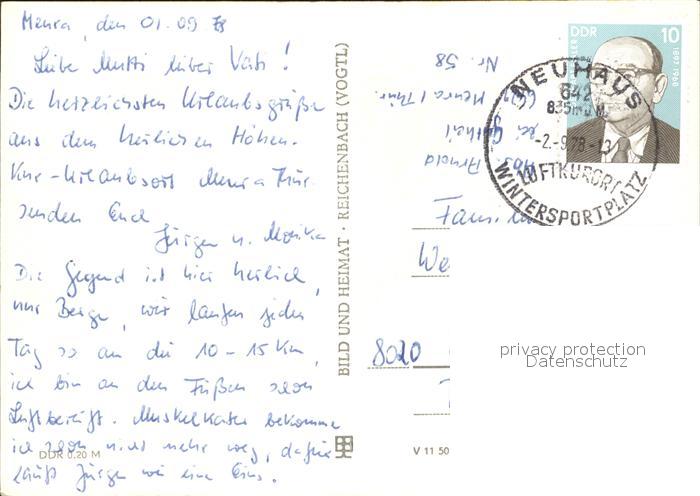 Meura, den 01.09 78
Liebe Mutti lieber Vati!
Die herzlichsten Urlaubsgrüße
aus dem herrlichen Höhen-
Kur-Urlaubsort Meura Thür.
senden Euch
Jürgen u. Monika
Die Gegend ist hier herrlich,
nur Berge, wir laufen jeden
Tag so an die 10 - 15 Km,
ich bin an den Füßen schon
Luftbereift. Muskelkater bekomme
ich schon nicht mehr weg, dafür
läuft Jürgen wie eine Eins.
DDR 0,20 M
BILD UND HEIMAT · REICHENBACH (VOGTL)
V 11 50
Abs. Arnold
bei
Meura / Thür.
Nr. 58
DDR
10
1897-1960
NEUHAUS
642
835m ü.M.
-2.-9.78-13
LUFTKURORT
WINTERSPORTPLATZ
Familie
We
8020
privacy protection
Datenschutz